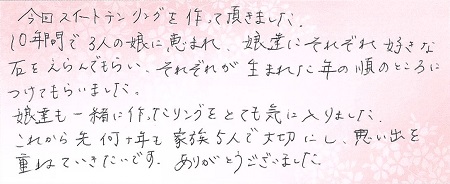 今回スイートテンリングを作って頂きました.
10年間で3人の娘に恵まれ、娘達にそれぞれ好きな
石をえらんでもらい、それぞれが生まれた年の順のところに
つけてもらいました。
娘達も一緒に作ったリングをとても気に入りました.
これから先何十年も家族5人で大切にし、思い出を
重ねていきたいです. ありがとうございました.